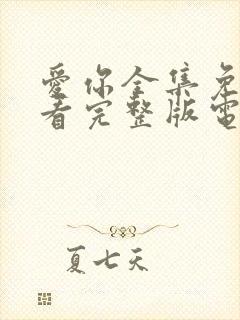 愛你全集免
看完整版電
夏七天